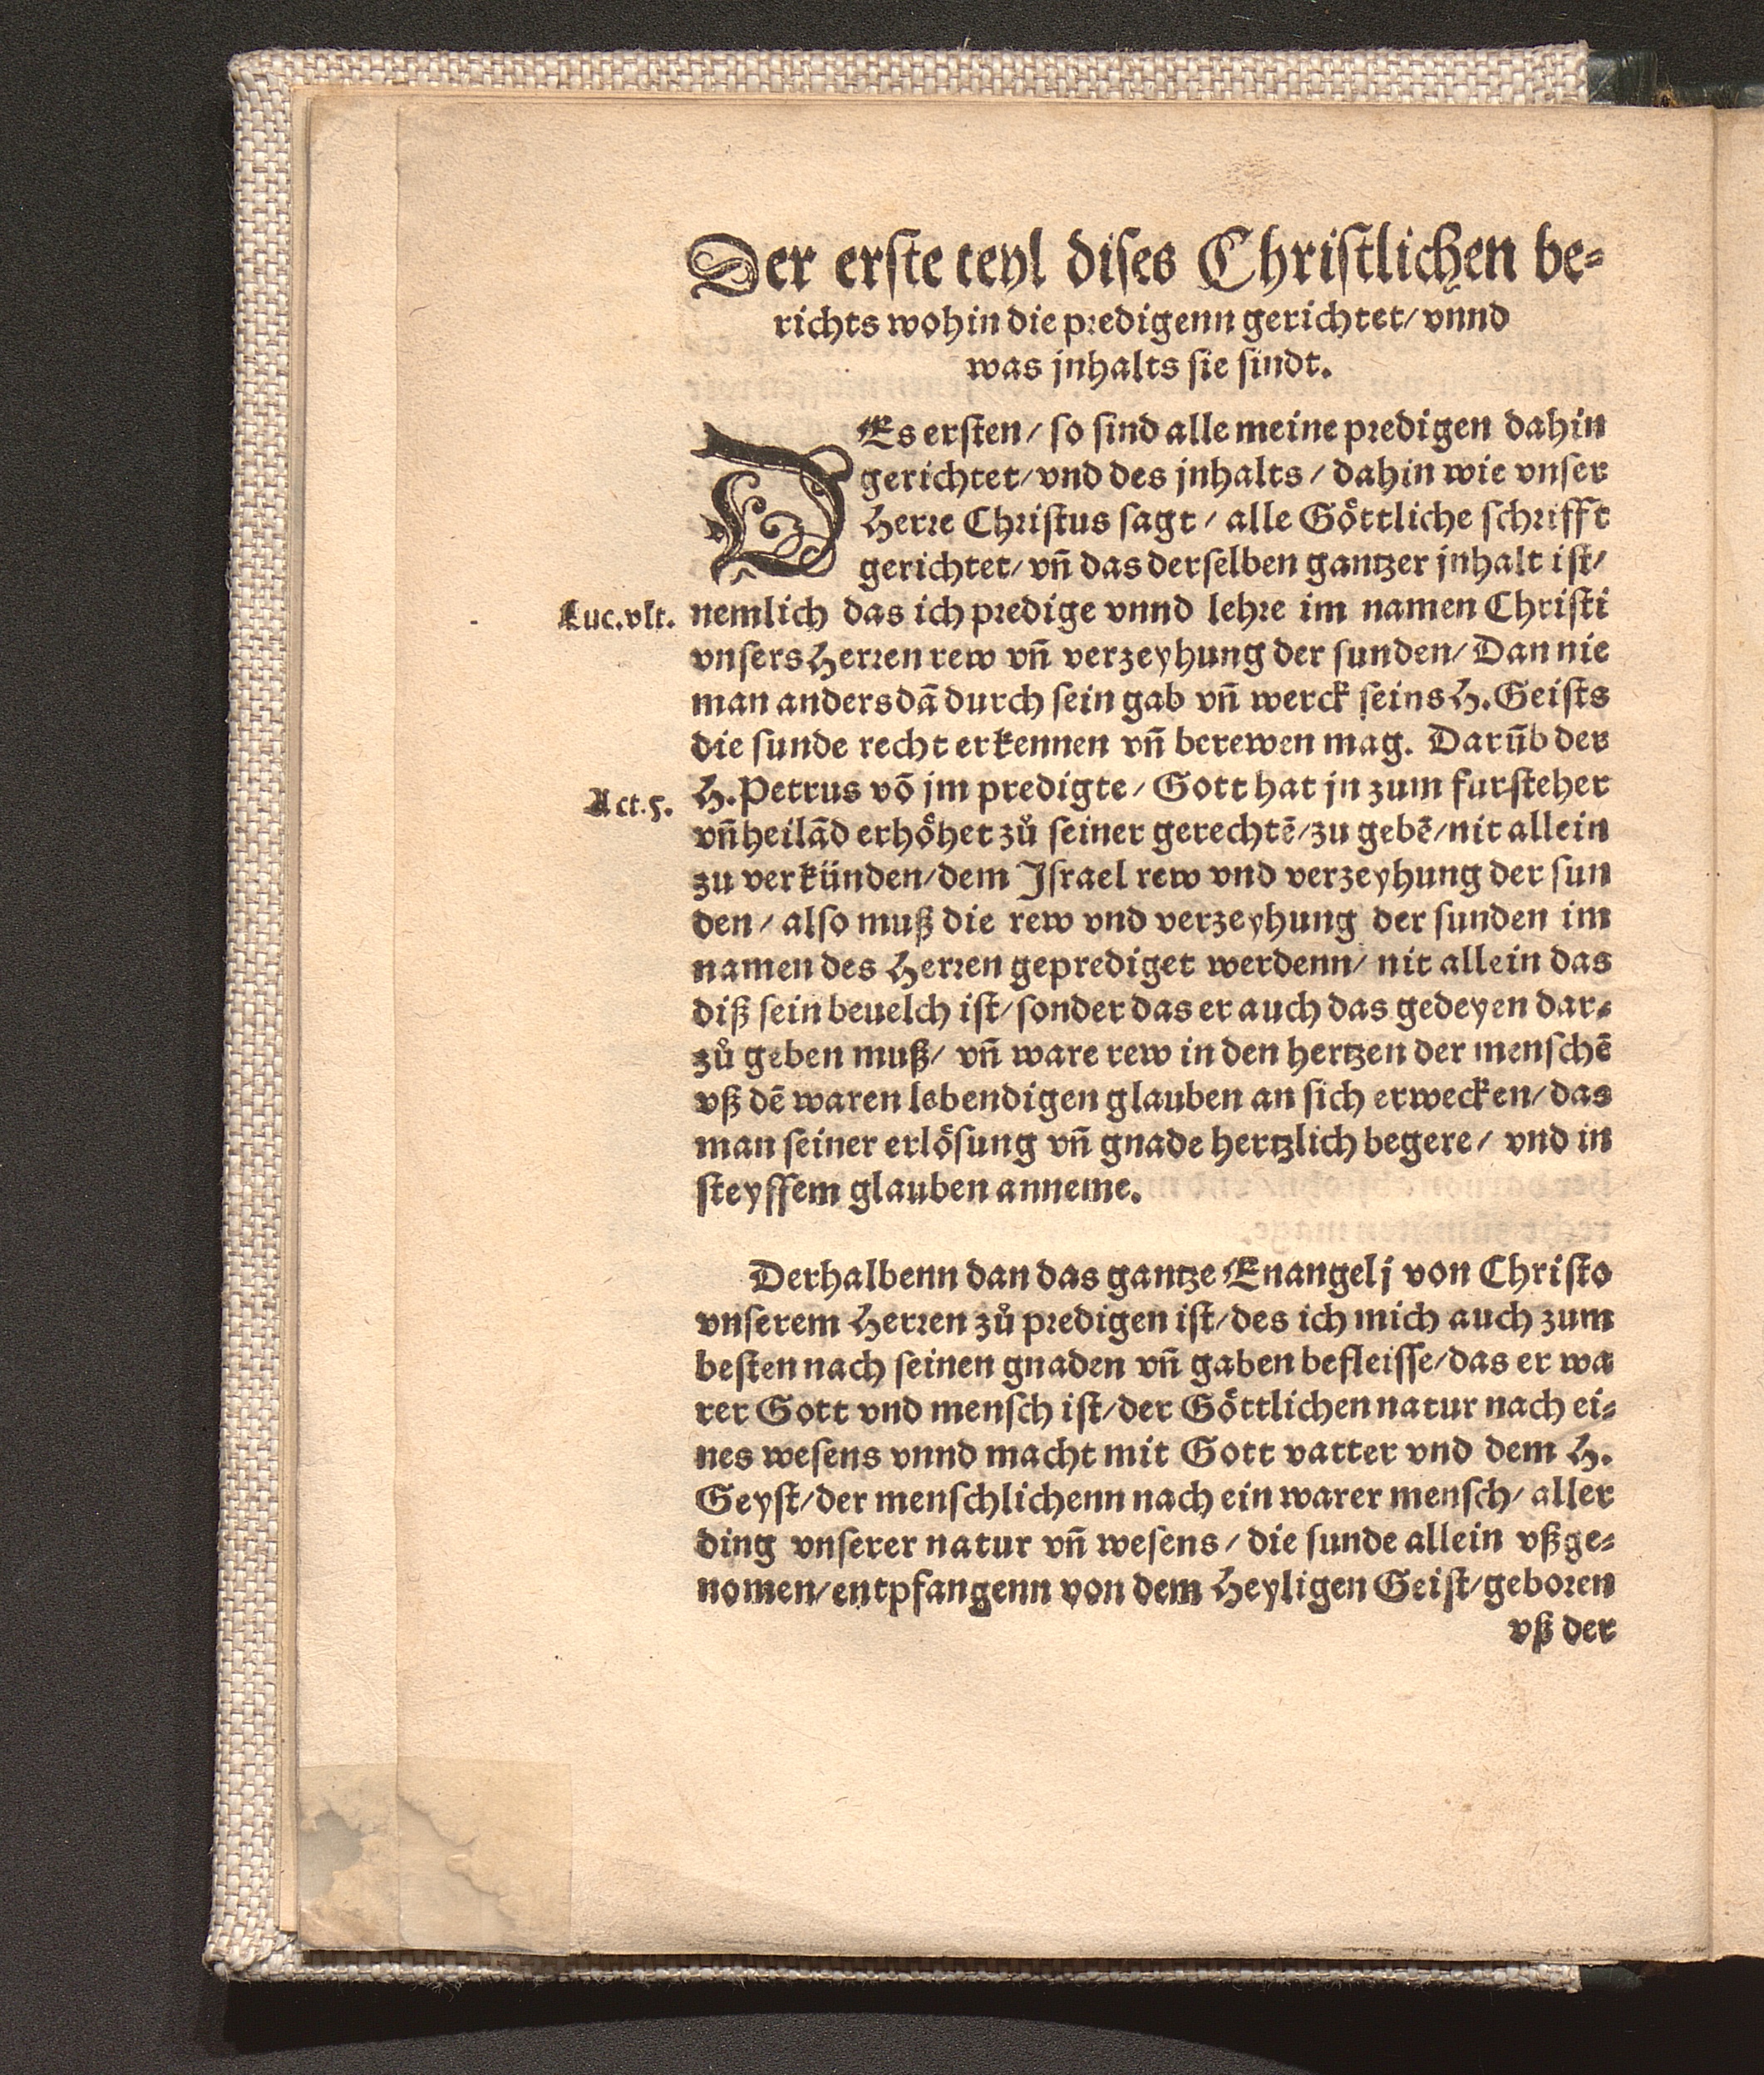 Der erste teyl dises Christlichen be⸗
richts wohin die predigenn gerichtet/ vnnd
was jnhalts sie sindt.
DEs ersten/ so sind alle meine predigen dahin
gerichtet/ vnd des jnhalts/ dahin wie vnser
Herre Christus sagt/ alle Göttliche schrifft
gerichtet/ vñ das derselben gantzer jnhalt ist/
Luc. vlt.
nemlich das ich predige vnnd lehre im namen Christi
vnsers Herren rew vñ verzeyhung der sunden/ Dan nie
man anders dā durch sein gab vñ werck seins H. Geists
die sunde recht erkennen vñ berewen mag. Darūb der
Act. 5.
H. Petrus vō jm predigte/ Gott hat jn zum fursteher
vñ heilād erhöhet zů seiner gerechtē/ zu gebē/ nit allein
zu verkünden/ dem Israel rew vnd verzeyhung der sun
den/ also muß die rew vnd verzeyhung der sunden im
namen des Herren geprediget werdenn/ nit allein das
diß sein beuelch ist/ sonder das er auch das gedeyen dar⸗
zů geben muß/ vñ ware rew in den hertzen der menschē
vß dē waren lebendigen glauben an sich erwecken/ das
man seiner erlösung vñ gnade hertzlich begere/ vnd in
steyffem glauben anneme.
Derhalbenn dan das gantze Enangelj von Christo
vnserem Herren zů predigen ist/ des ich mich auch zum
besten nach seinen gnaden vñ gaben befleisse/ das er wa
rer Gott vnd mensch ist/ der Göttlichen natur nach ei⸗
nes wesens vnnd macht mit Gott vatter vnd dem H.
Geyst/ der menschlichenn nach ein warer mensch/ aller
ding vnserer natur vñ wesens/ die sunde allein vßge⸗
nomen/ entpfangenn von dem Heyligen Geist/ geboren
vß der